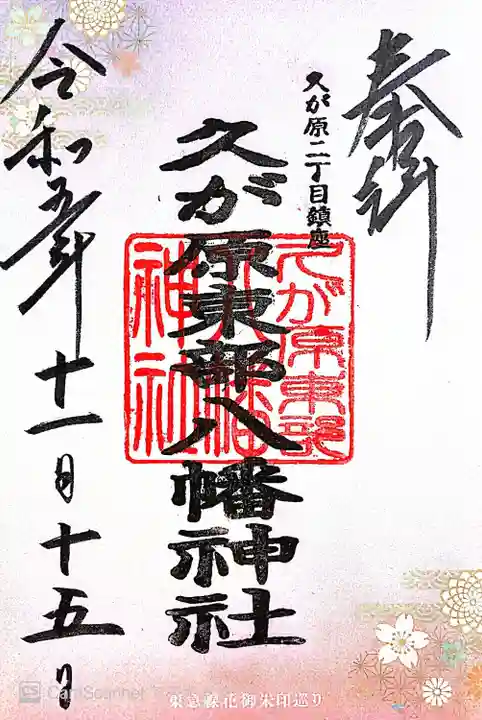 奉拝
久が原二丁目鎮座
久が原東部八幡神社
久が原東部
八幡
神社
令和五年十一月十五日
東急線花御朱印巡り
CS CamScanner